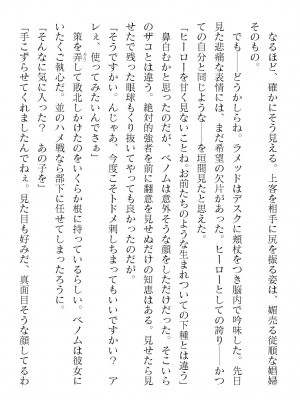 なるほど、確かにそう見える。上客を相手に尻を振る姿は、媚売る従順な娼婦
そのもの。
でも――どうかしらね。ラメッドはデスクに頬杖をつき脳内で吟味した。先日
見た悲痛な表情には、まだ希望の欠片があった。ヒーローとしての誇り――かつ
ての自分と同じような――を垣間見たと思えた。
「ヒーローを甘く見ないことね。お前たちのような生まれついての下種とは違う」
鼻白むかと思ったのだが、ベノムは意外そうな顔をしただけだった。そこら
のザコとは違う。絶対的強者を前に翻意を見せぬだけの知恵はある。見せたら見
せたで残った眼球もくり抜いてやっても良かったのだが。
「そうですかい。んじゃあ、今度こそトドメ刺しちまってもいいですかい？　ア
レぇ、使ってみたいんでさぁ」
策を弄して敗北しかけたのをいくらか根に持っているらしい。ベノムは彼女に
いたくご執心だ。並のハメ戦なら部下に任せてしまったろうに。
「そんなに気に入った？　あの子を」
「手こずらせてくれましたんでねぇ。見た目も好みだ、真面目そうな顔してるわ